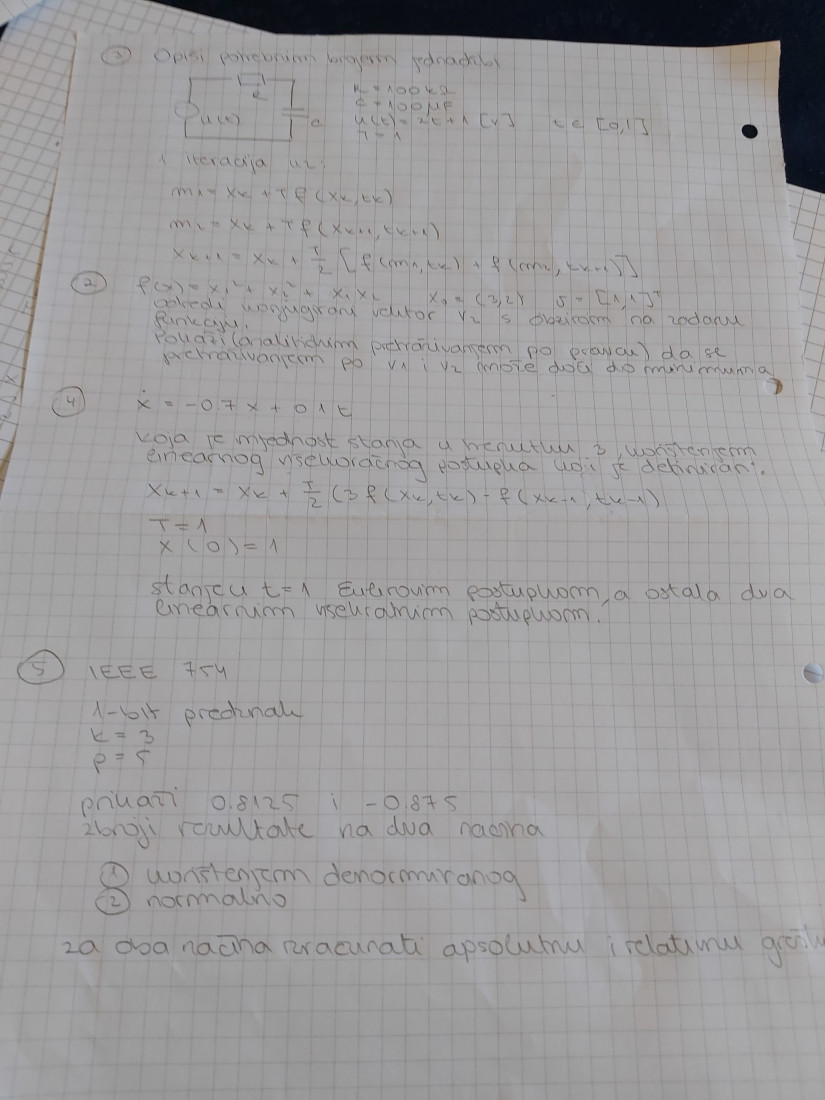 ③ Opiši potrebnim brojem jednadžbi
R = 100 kΩ
C = 100 μF
u(t) = 2t + 1 [V] t ∈ [0,1]
T = 1
R
u(t)
C
1 iteracija uz:
m₁ = xₖ + T f (xₖ, tₖ)
m₂ = xₖ + T f (xₖ₊₁, tₖ₊₁)
xₖ₊₁ = xₖ + T/2 [f(m₁, tₖ) + f(m₂, tₖ₊₁)]
② f(x) = x₁² + x₂² + x₁x₂ x₀ = (3,2) s = [1,1]ᵀ
odredi konjugirani vektor v₂ s obzirom na zadanu
funkciju.
Pokaži (analitičkim pretraživanjem po pravcu) da se
pretraživanjem po v₁ i v₂ može doći do minimuma
④ ẋ = -0.7x + 0.1t
Koja je vrijednost stanja u trenutku 3, korištenjem
linearnog višekoračnog postupka koji je definiran:
xₖ₊₁ = xₖ + T/2 (3 f(xₖ, tₖ) - f(xₖ₋₁, tₖ₋₁)
T = 1
x(0) = 1
stanje u t=1 Eulerovim postupkom, a ostala dva
linearnim višekračnim postupkom.
⑤ IEEE 754
1-bit predznak
k = 3
p = 5
prikaži 0.8125 i -0.875
zbroji rezultate na dva načina
① korištenjem denormiranog
② normalno
za oba načina izračunati apsolutnu i relativnu